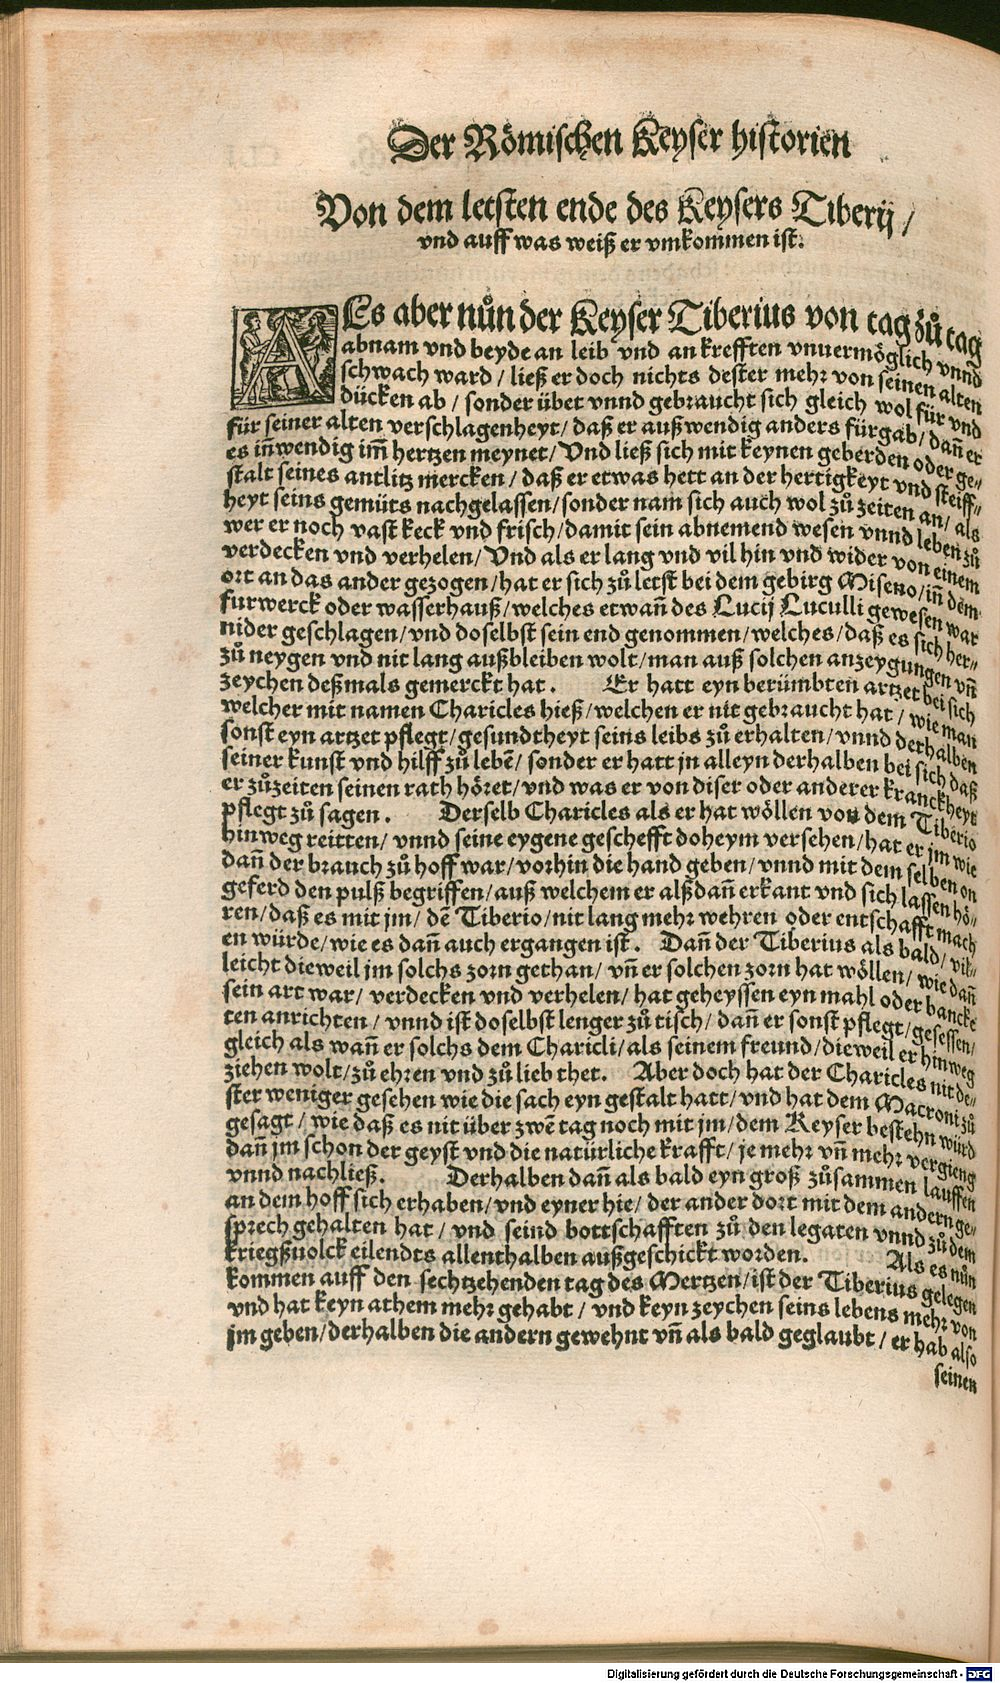 Der Römischen Keyser historien
Von dem letsten ende des Keysers Tiberij /
vnd auff was weiß er vmkommen ist.
ALs aber nůn der Keyser Tiberius von tag zů tag
abnam vnd beyde an leib vnd an krefften vnuermöglich vnnd
schwach ward / ließ er doch nichts dester mehr von seinen alten
dücken ab / sonder übet vnnd gebraucht sich gleich wol für vnd
für seiner alten verschlagenheyt / daß er außwendig anders fürgab / dañ er
es iñwendig im̃ hertzen meynet / Vnd ließ sich mit keynen geberden oder ge⸗
stalt seines antlitz mercken / daß er etwas hett an der hertigkeyt vnd steiff⸗
heyt seins gemüts nachgelassen / sonder nam sich auch wol zů zeiten an / als
wer er noch vast keck vnd frisch / damit sein abnemend wesen vnnd leben zů
verdecken vnd verhelen / Vnd als er lang vnd vil hin vnd wider von einem
ort an das ander gezogen / hat er sich zů letst bei dem gebirg Miseno / iñ dem
furwerck oder wasserhauß / welches etwañ des Lucij Luculli gewesen war
nider geschlagen / vnd doselbst sein end genommen / welches / daß es sich her⸗
zů neygen vnd nit lang außbleiben wolt / man auß solchen anzeygungen vñ
zeychen deßmals gemerckt hat. Er hatt eyn berümbten artzet bei sich
welcher mit namen Charicles hieß / welchen er nit gebraucht hat / wie man
sonst eyn artzet pflegt / gesundtheyt seins leibs zů erhalten / vnnd derhalben
seiner kunst vnd hilff zů lebẽ / sonder er hatt jn alleyn derhalben bei sich daß
er zůzeiten seinen rath höret / vnd was er von diser oder anderer kranckheyt
pflegt zů sagen. Derselb Charicles als er hat wöllen von dem Tiberio
hinweg reitten / vnnd seine eygene geschefft doheym versehen / hat er jm wie
dañ der brauch zů hoff war / vorhin die hand geben / vnnd mit dem selben on
geferd den pulß begriffen / auß welchem er alßdañ erkant vnd sich lassen hö⸗
ren / daß es mit jm / dẽ Tiberio / nit lang mehr wehren oder entschafft mach
en würde / wie es dañ auch ergangen ist. Dañ der Tiberius als bald / vil⸗
leicht dieweil jm solchs zorn gethan / vñ er solchen zorn hat wöllen / wie dañ
sein art war / verdecken vnd verhelen / hat geheyssen eyn mahl oder bancke
ten anrichten / vnnd ist doselbst lenger zů tisch / dañ er sonst pflegt / gesessen /
gleich als wañ er solchs dem Charicli / als seinem freund / dieweil er hinweg
ziehen wolt / zů ehren vnd zů lieb thet. Aber doch hat der Charicles nit de⸗
ster weniger gesehen wie die sach eyn gestalt hatt / vnd hat dem Macroni zů
gesagt / wie daß es nit über zwẽ tag noch mit jm / dem Keyser bestehn würd
dañ jm schon der geyst vnd die natürliche krafft / je mehr vñ mehr vergieng
vnnd nachließ. Derhalben dañ als bald eyn groß zůsammen lauffen
an dem hoff sich erhaben / vnd eyner hie / der ander dort mit dem andern ge⸗
sprech gehalten hat / vnd seind bottschafften zů den legaten vnnd zů dem
kriegßuolck eilendts allenthalben außgeschickt worden. Als es nůn
kommen auff den sechtzehenden tag des Mertzen / ist der Tiberius gelegen
vnd hat keyn athem mehr gehabt / vnd keyn zeychen seins lebens mehr von
jm geben / derhalben die andern gewehnt vñ als bald geglaubt / er hab also
seinen
Digitalisierung gefördert durch die Deutsche Forschungsgemeinschaft - DFG